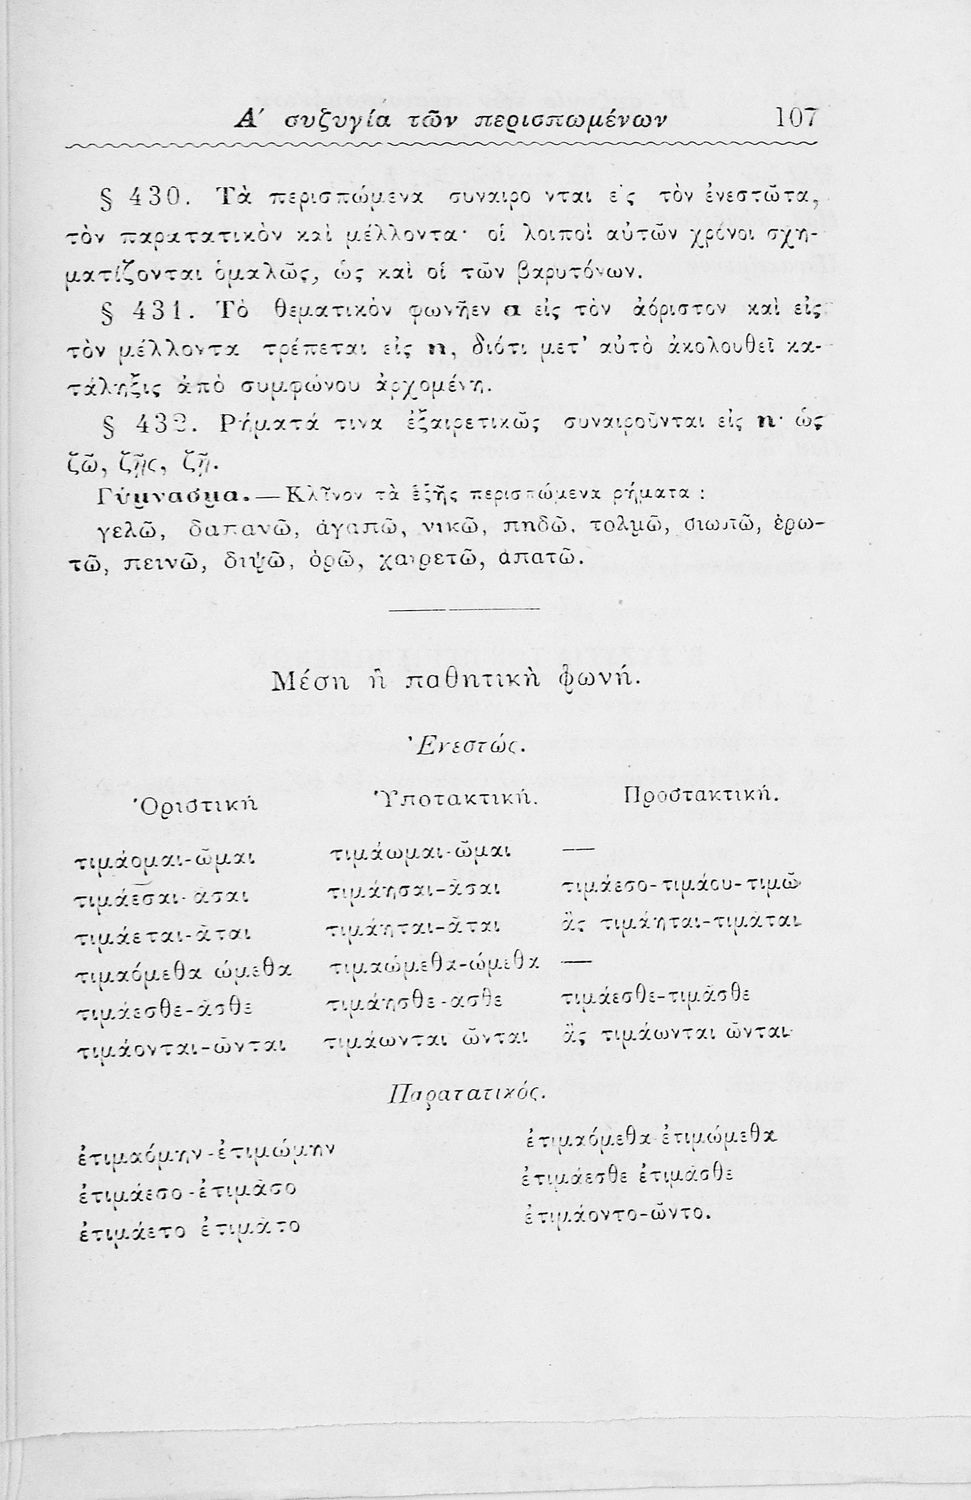 Α΄ συζυγία τῶν περισπωμένων 107
§ 430. Τὰ περισπώμενα συναιρο νται ε ς τὸν ἐνεστῶτα,
τὸν παρατατικὸν καὶ μέλλοντα· οἱ λοιποὶ αὐτῶν χρόνοι σχη-
ματίζονται ὁμαλῶς, ὡς καὶ οἱ τῶν βαρυτόνων.
§ 431. Τὸ θεματικὸν φωνῆεν α εἰς τὸν ἀόριστον καὶ εἰς
τὸν μέλλοντα τρέπεται εἰς η, διότι μετ' αὐτὸ ἀκολουθεῖ κα-
τάληξις ἀπὸ συμφώνου ἀρχομένη.
§ 432. Ρήματά τινα ἐξαιρετικῶς συναιροῦνται εἰς η· ὡς
ζῶ, ζῇς, ζῇ.
Γύμνασμα.—Κλῖνον τὰ ἑξῆς περισπώμενα ρήματα :
γελῶ, δαπανῶ, ἀγαπῶ, νικῶ, πηδῶ, τολμῶ, σιωπῶ, ἐρω-
τῶ, πεινῶ, διψῶ, ὁρῶ, χαιρετῶ, ἀπατῶ.
Μέση ἢ παθητικὴ φωνή.
Ἐνεστώς.
Ὁριστική Ὑποτακτική. Προστακτική.
τιμάομαι-ῶμαι τιμάωμαι-ῶμαι —
τιμάεσαι-ᾶσαι τιμάησαι-ᾶσαι τιμάεσο-τιμάου-τιμῶ
τιμάεται-ᾶται τιμάηται-ᾶται ἂς τιμάηται-τιμᾶται
τιμαόμεθα ώμεθα τιμαώμεθα-ώμεθα —
τιμάεσθε-ᾶσθε τιμάησθε-ασθε τιμάεσθε-τιμᾶσθε
τιμάονται-ῶνται τιμάωνται ῶνται ἂς τιμάωνται ῶνται
Παρατατικός.
ἐτιμαόμην-ἐτιμώμην ἐτιμαόμεθα ἐτιμώμεθα
ἐτιμάεσο-ἐτιμᾶσο ἐτιμάεσθε ἐτιμᾶσθε
ἐτιμάετο ἐτιμᾶτο ἐτιμάοντο-ῶντο.